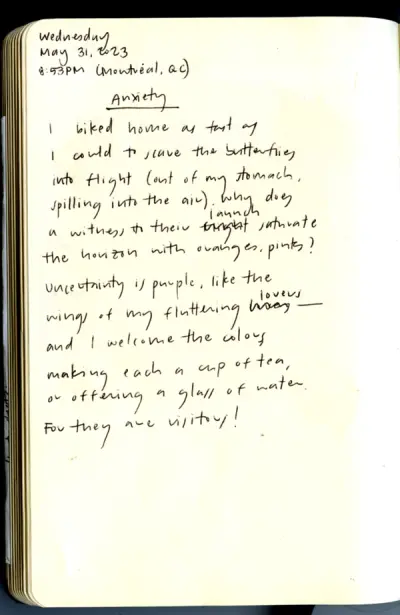 Wednesday
May 31, 2023
8:53PM (Montréal, QC)
Anxiety
I biked home as fast as
I could to scare the butterflies
into flight (out of my stomach,
spilling into the air). Why does
launch
a witness to their saturate
the horizon with oranges, pinks?
Uncertainty is purple, like the
lovers
wings of my fluttering —
and I welcome the colours
making each a cup of tea,
or offering a glass of water.
For they are visitors!